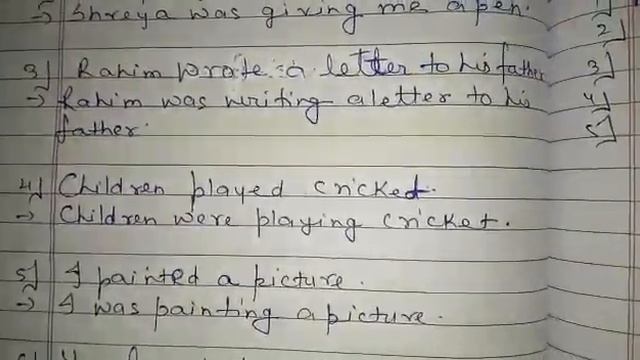 → Shreya was giving me a pen.
3] Rahim wrote a letter to his father
→ Rahim was writing a letter to his
father.
4] Children played cricket.
→ Children were playing cricket.
5] I painted a picture.
→ I was painting a picture.
1]
2]
3]
4]
5]